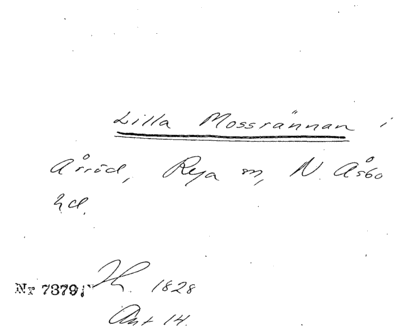 Lilla Mossrännan i
Årröd, Rya sn, N. Åsbo
hd.
Nr 7379; Jh. 1828
Akt 14.